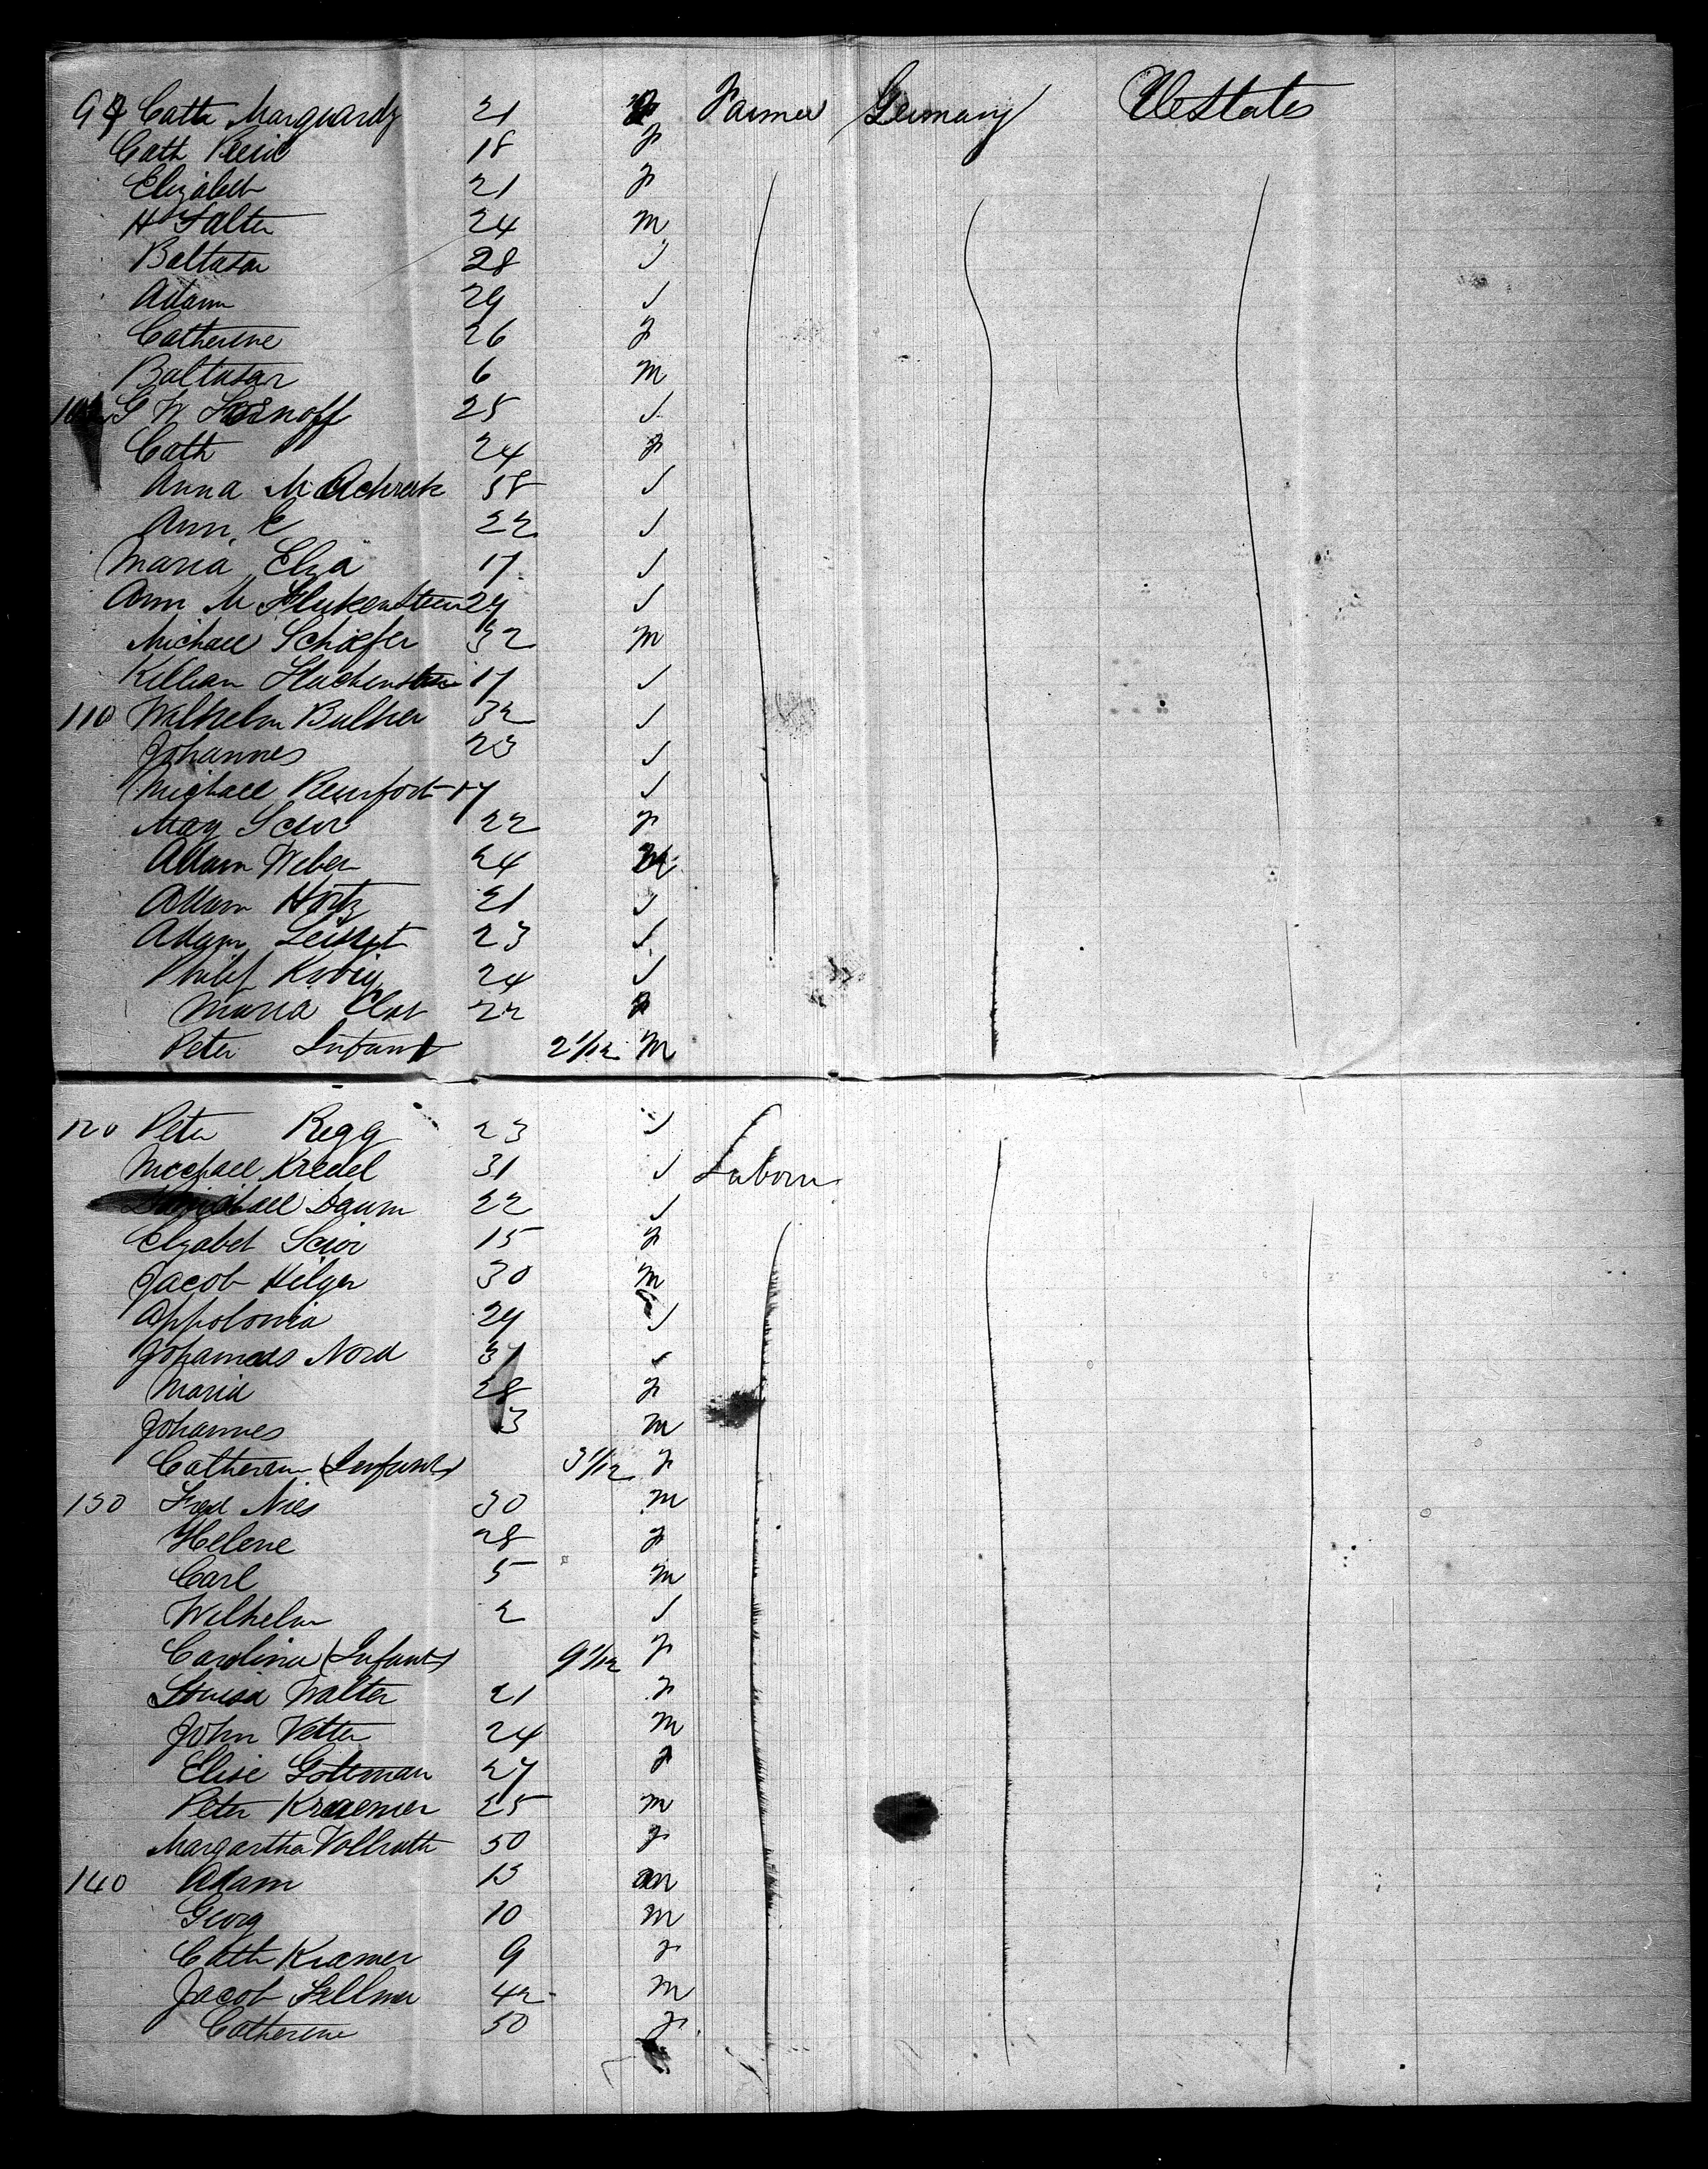 94 Cath Marquardz 21 F Farmer Germany UStates
Cath 18 F
Elizabeth 21 F
H Falter 24 M
Baltasar 28 ✓
Adam 29 ✓
Catherine 26 F
Baltasar 6 M
G W 25 ✓
Cath 24 F
Anna M 58 ✓
Ann E 22 ✓
Maria Elza 17 ✓
Ann M 24 ✓
Michael Schiefer 32 M
Killian 17 ✓
110 Wilhelm 32 ✓
Johannes 23 ✓
Michael 17 ✓
May Scior 22 F
Adam Weber 24 M
Adam Hortz 21 ✓
Adam 23 ✓
Philip 24 ✓
Maria 22 F
Peter Infant 2 1/12 M
120 Peter Regg 23 ✓
Michael Kredel 31 ✓ Laborer
Michael Daum 22 ✓
Elzabet Scior 15 F
Jacob Hilger 30 M
Appolonia 29 ✓
Johannes Nord 31 ✓
Maria 28 F
Johannes 3 M
Catherine (Infant) 3 1/12 F
130 Fred Nies 30 M
Helene 28 F
Carl 5 M
Wilhelm 2 ✓
Carolina (Infant) 9 1/12 F
Louisa Walter 21 F
John Vetter 24 M
Elise Gottman 27 F
Peter Kraemer 25 M
Margartha Vollrath 50 F
140 Adam 13 M
Georg 10 M
Cath Kramer 9 F
Jacob Fellmer 42 M
Catherine 50 F